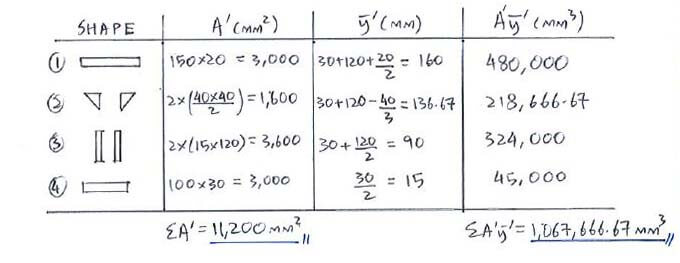 SHAPE A' (MM²) ȳ' (MM) A'ȳ' (MM³)
① 150×20 = 3,000 30+120+20/2 = 160 480,000
② 2×(40×40/2) = 1,600 30+120-40/3 = 136.67 218,666.67
③ 2×(15×120) = 3,600 30+120/2 = 90 324,000
④ 100×30 = 3,000 30/2 = 15 45,000
ΣA' = 11,200 MM² ΣA'ȳ' = 1,067,666.67 MM³